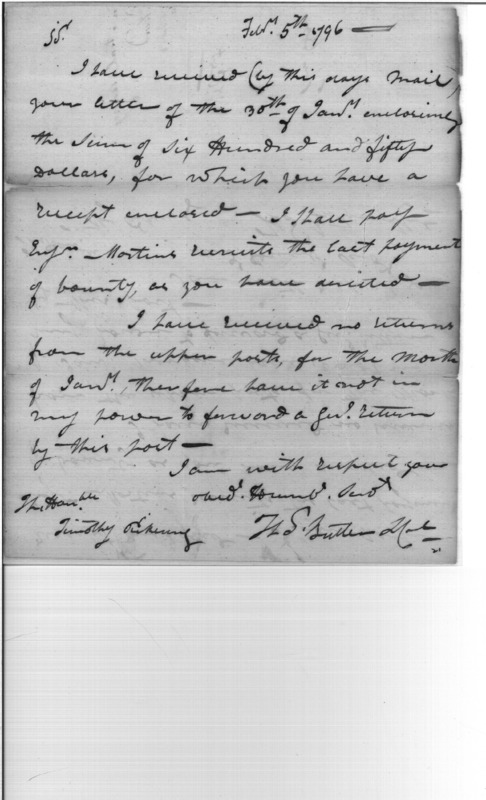 Sir, Feby. 5th 1796 —
I have received (by this days mail,
your letter of the 30th of Jany. enclosing
the sum of Six Hundred and fifty
Dollars, for which you have a
receipt enclosed — I shall pay
Ensn. Martins recruits the last payment
of bounty, as you have directed —
I have received no returns
from the upper posts, for the month
of Jany., therefore have it not in
my power to forward a Genl. return
by this post —
I am with respect your
obedt. Humbl. Servt
Th. Honble
Timothy Pickering Th S. Butler Majr